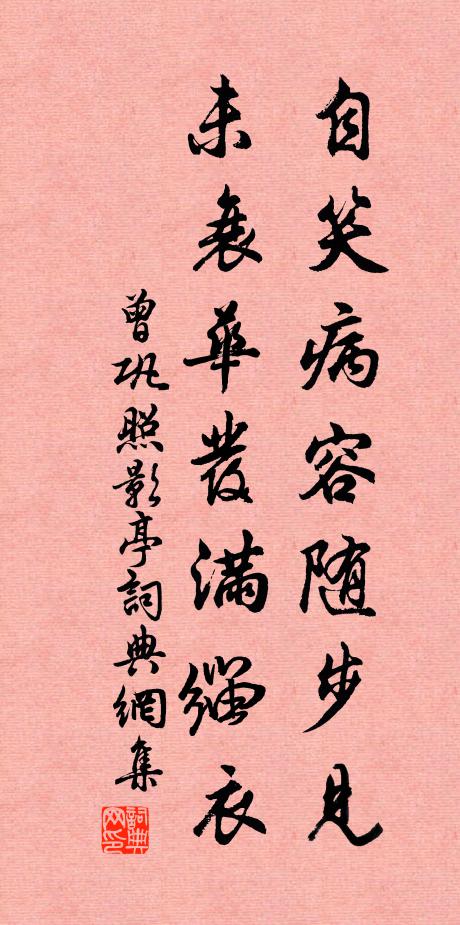 自笑病容随步見
未衰華發滿緇衣
曾巩照影亭詞典網集
詞典网印